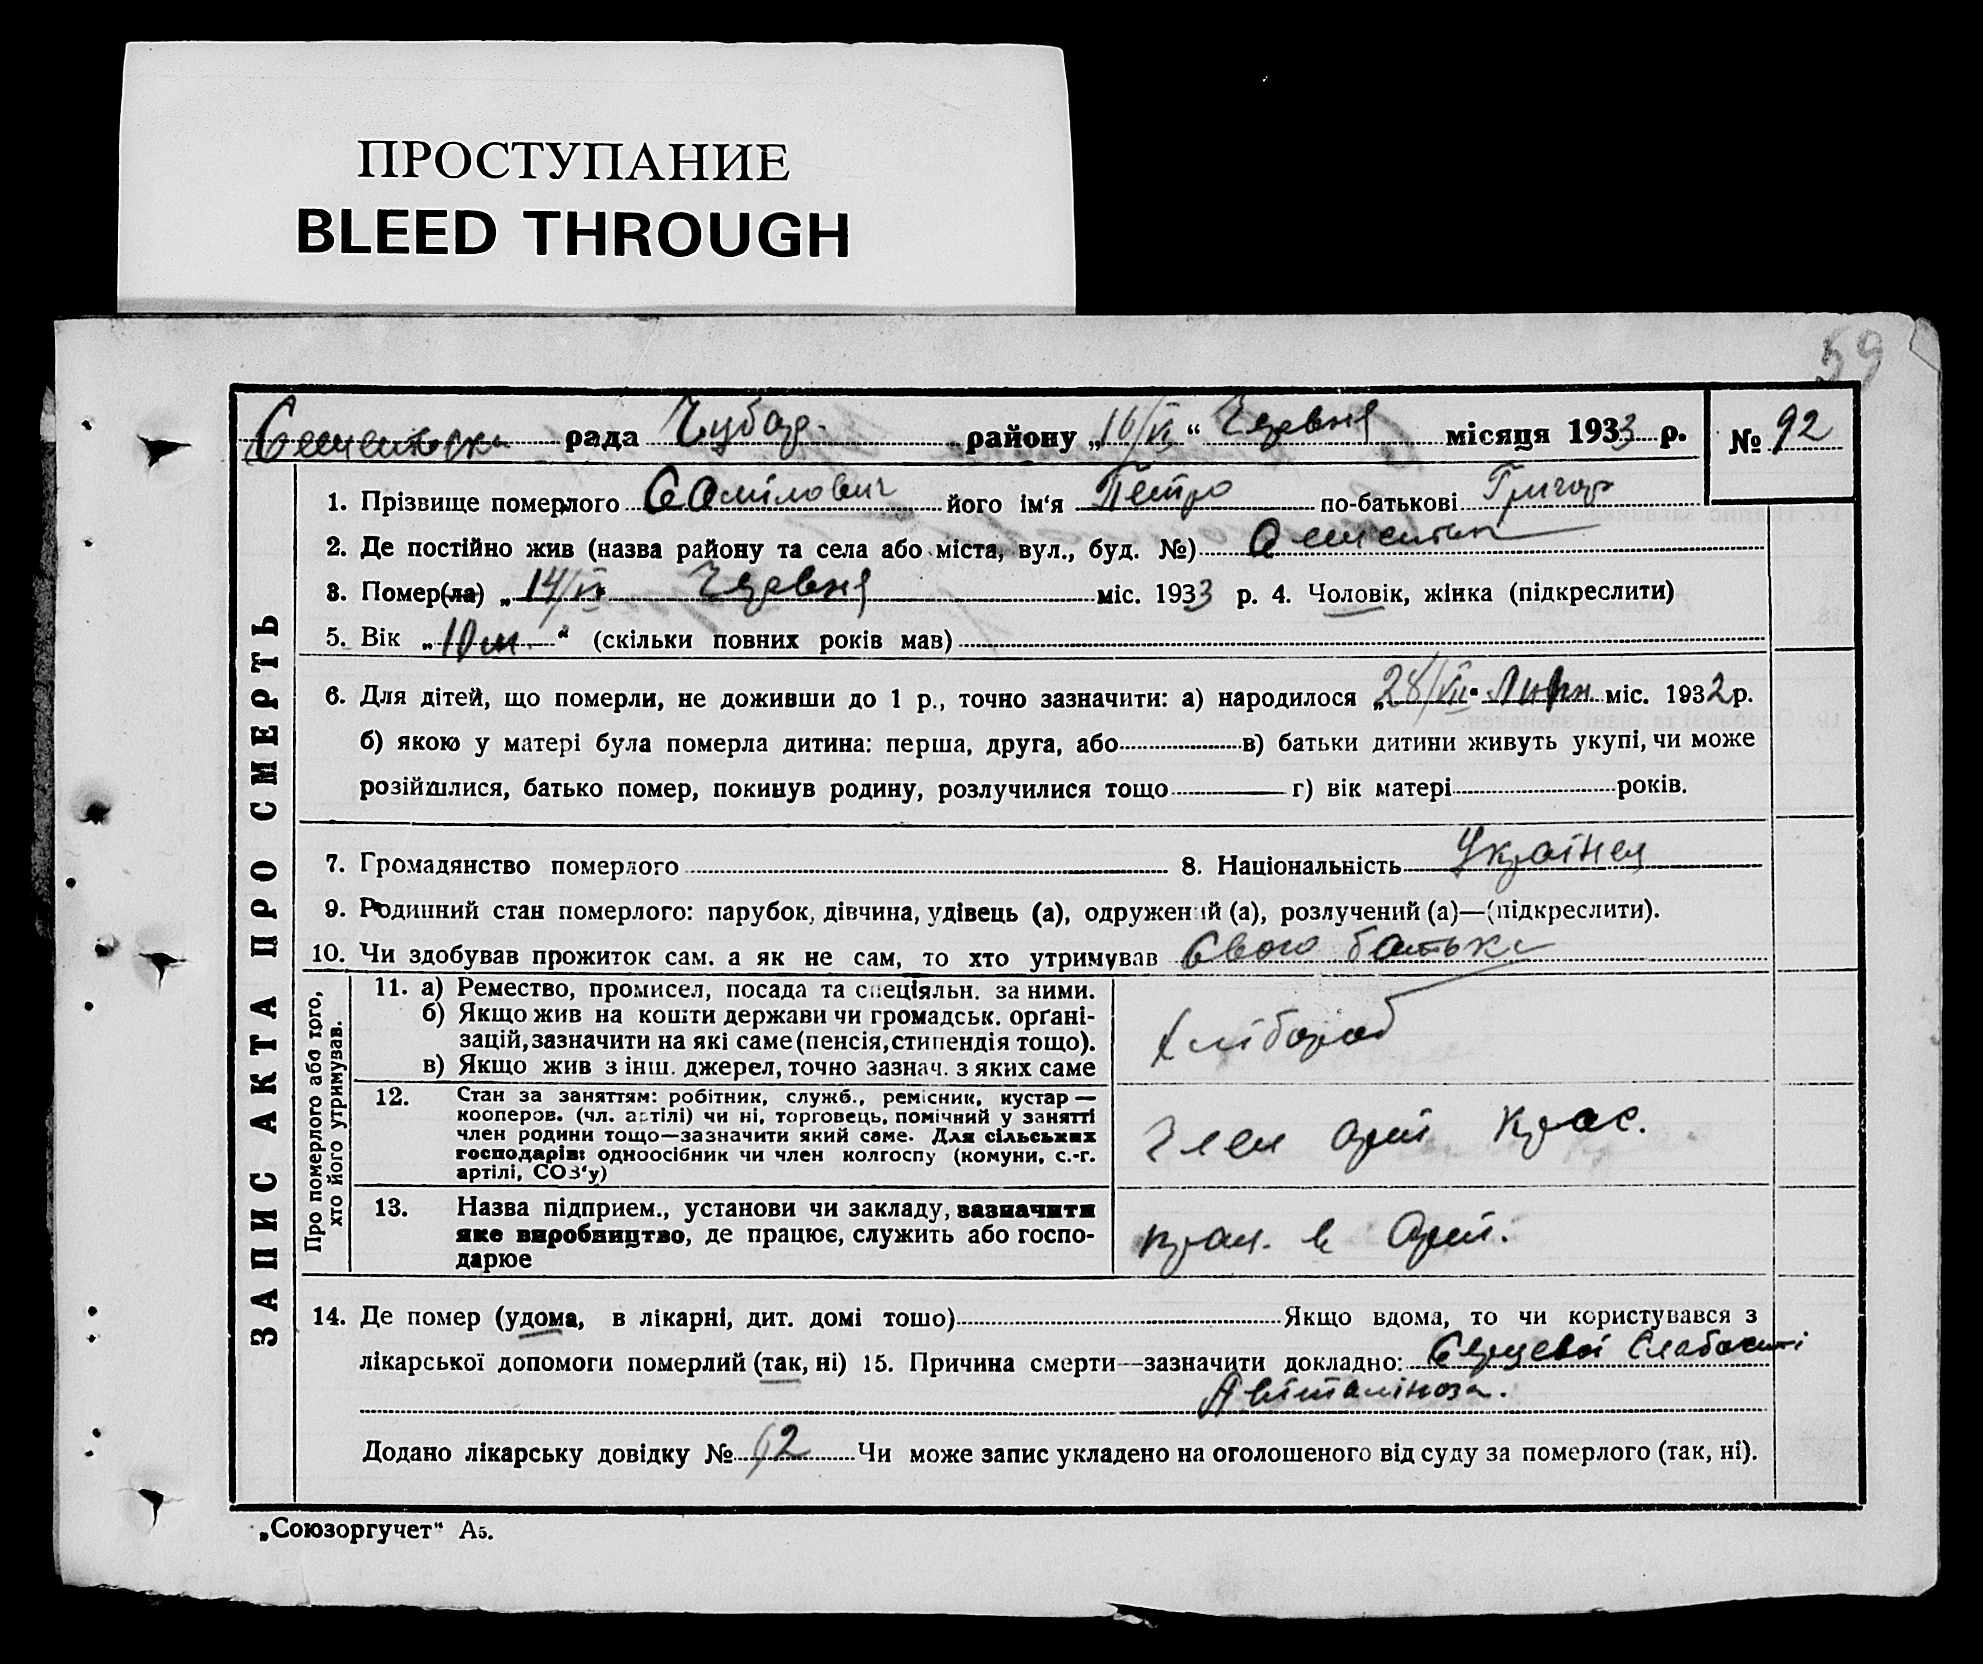 ПРОСТУПАНИЕ
BLEED THROUGH
59
рада Чубар. району „16/VI“ Червня місяця 1933 р. № 92
ЗАПИС АКТА ПРО СМЕРТЬ
1. Прізвище померлого його ім‘я Петро по-батькові Григор
2. Де постійно жив (назва району та села або міста, вул., буд. №)
3. Помер(ла) „14/VI Червня міс. 1933 р. 4. Чоловік, жінка (підкреслити)
5. Вік „10 м.“ (скільки повних років мав)
6. Для дітей, що померли, не доживши до 1 р., точно зазначити: а) народилося „28/VII“ міс. 1932 р.
б) якою у матері була померла дитина: перша, друга, або в) батьки дитини живуть укупі, чи може
розійшлися, батько помер, покинув родину, розлучилися тощо г) вік матері років.
7. Громадянство померлого 8. Національність Українец
9. Родинний стан померлого: парубок, дівчина, удівець (а), одружений (а), розлучений (а)—(підкреслити).
10. Чи здобував прожиток сам. а як не сам, то хто утримував Свого батька
Про померлого або того, хто його утримував.
11. а) Ремество, промисел, посада та спеціяльн. за ними.
б) Якщо жив на кошти держави чи громадськ. орґані-
зацій, зазначити на які саме (пенсія, стипендія тощо).
в) Якщо жив з інш. джерел, точно зазнач. з яких саме
Хлібороб
12. Стан за заняттям: робітник, служб., ремісник, кустар—
кооперов. (чл. артілі) чи ні, торговець, помічний у занятті
член родини тощо—зазначити який саме. Для сільських
господарів: одноосібник чи член колгоспу (комуни, с.-г.
артілі, СОЗ‘у)
Член Арті
13. Назва підприєм., установи чи закладу, зазначити
яке виробництво, де працює, служить або госпо-
дарює
в Арті.
14. Де помер (удома, в лікарні, дит. домі тошо) Якщо вдома, то чи користувався з
лікарської допомоги померлий (так, ні) 15. Причина смерти—зазначити докладно: Серцевої слабості
Авітаміноза.
Додано лікарську довідку № 92 Чи може запис укладено на оголошеного від суду за померлого (так, ні).
„Союзоргучет“ А5.